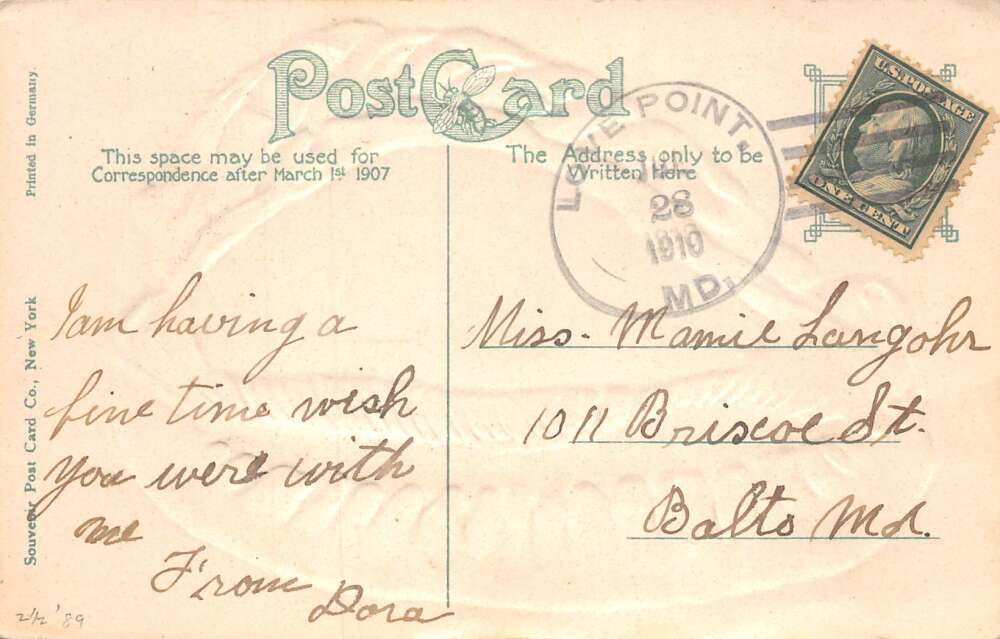 Post Card
This space may be used for
Correspondence after March 1st 1907
The Address only to be
Written Here
Printed in Germany.
Souvenir Post Card Co., New York
LOVE POINT.
28
1910
MD.
U.S. POSTAGE
ONE CENT
I am having a
fine time wish
you were with
me
From
Dora
Miss. Mamie Langohr
1011 Briscoe St.
Balto Md.
2 1/2 '89